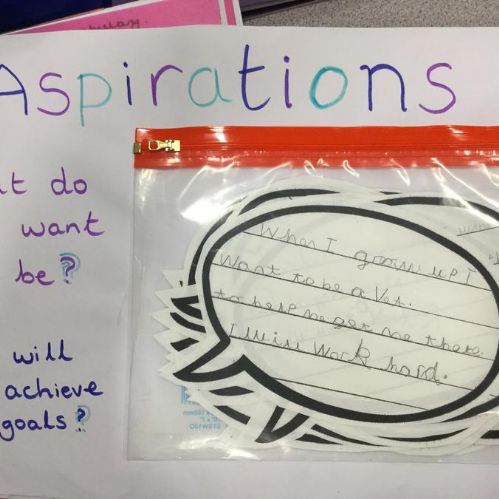 Aspirations
t do
want
be?
will
achieve
goals?
When I grow up I
Want to be a Vet.
to help me get me there
I will Work hard.